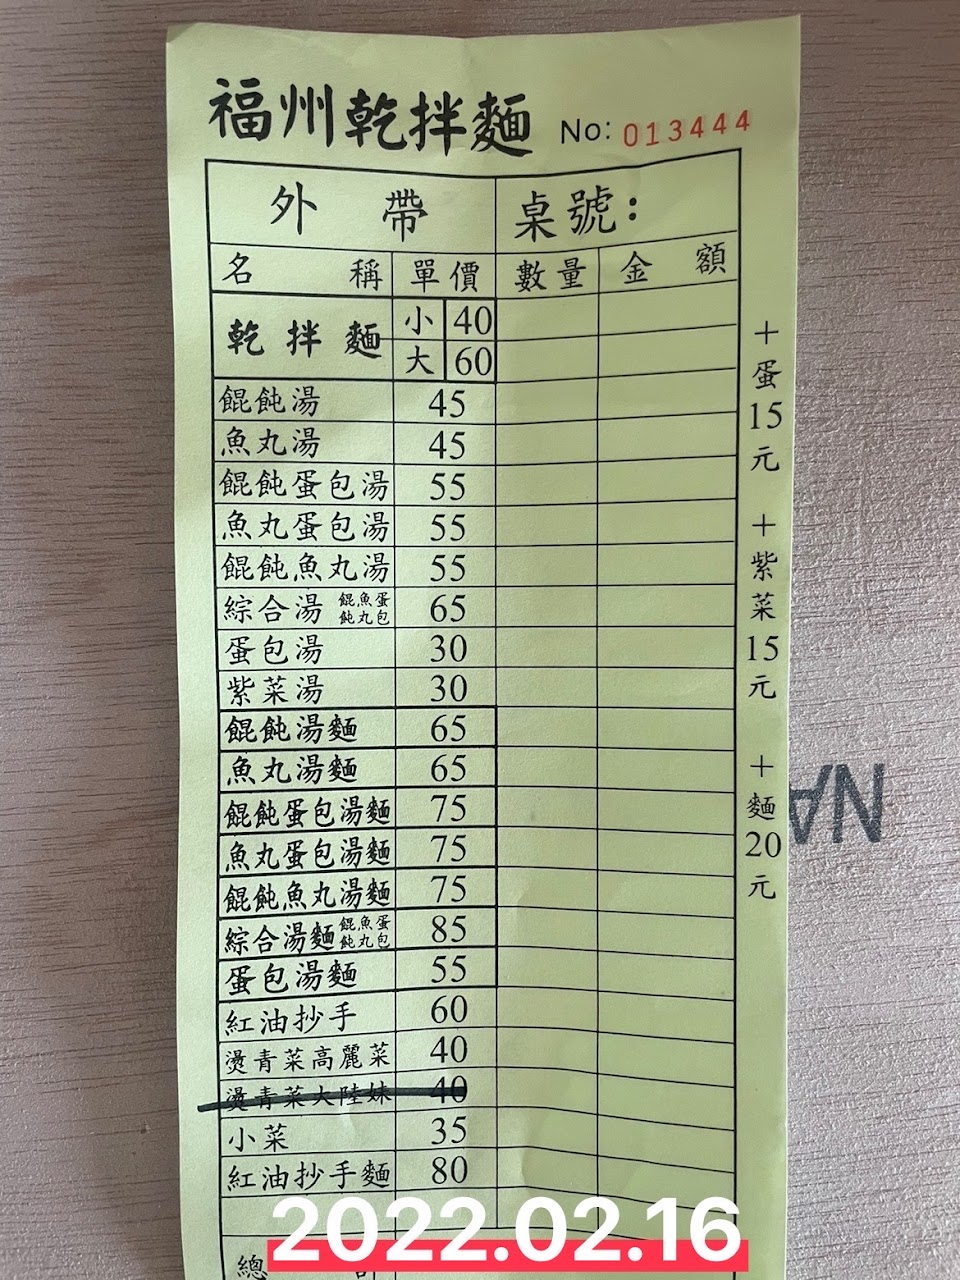 福州乾拌麵 No: 013444
外帶 桌號:
名稱 單價 數量 金額
乾拌麵 小 40
大 60
餛飩湯 45
魚丸湯 45
餛飩蛋包湯 55
魚丸蛋包湯 55
餛飩魚丸湯 55
綜合湯 餛飩魚丸蛋包 65
蛋包湯 30
紫菜湯 30
餛飩湯麵 65
魚丸湯麵 65
餛飩蛋包湯麵 75
魚丸蛋包湯麵 75
餛飩魚丸湯麵 75
綜合湯麵 餛飩魚丸蛋包 85
蛋包湯麵 55
紅油抄手 60
燙青菜高麗菜 40
燙青菜大陸妹 40
小菜 35
紅油抄手麵 80
總
+蛋15元
+紫菜15元
+麵20元
2022.02.16